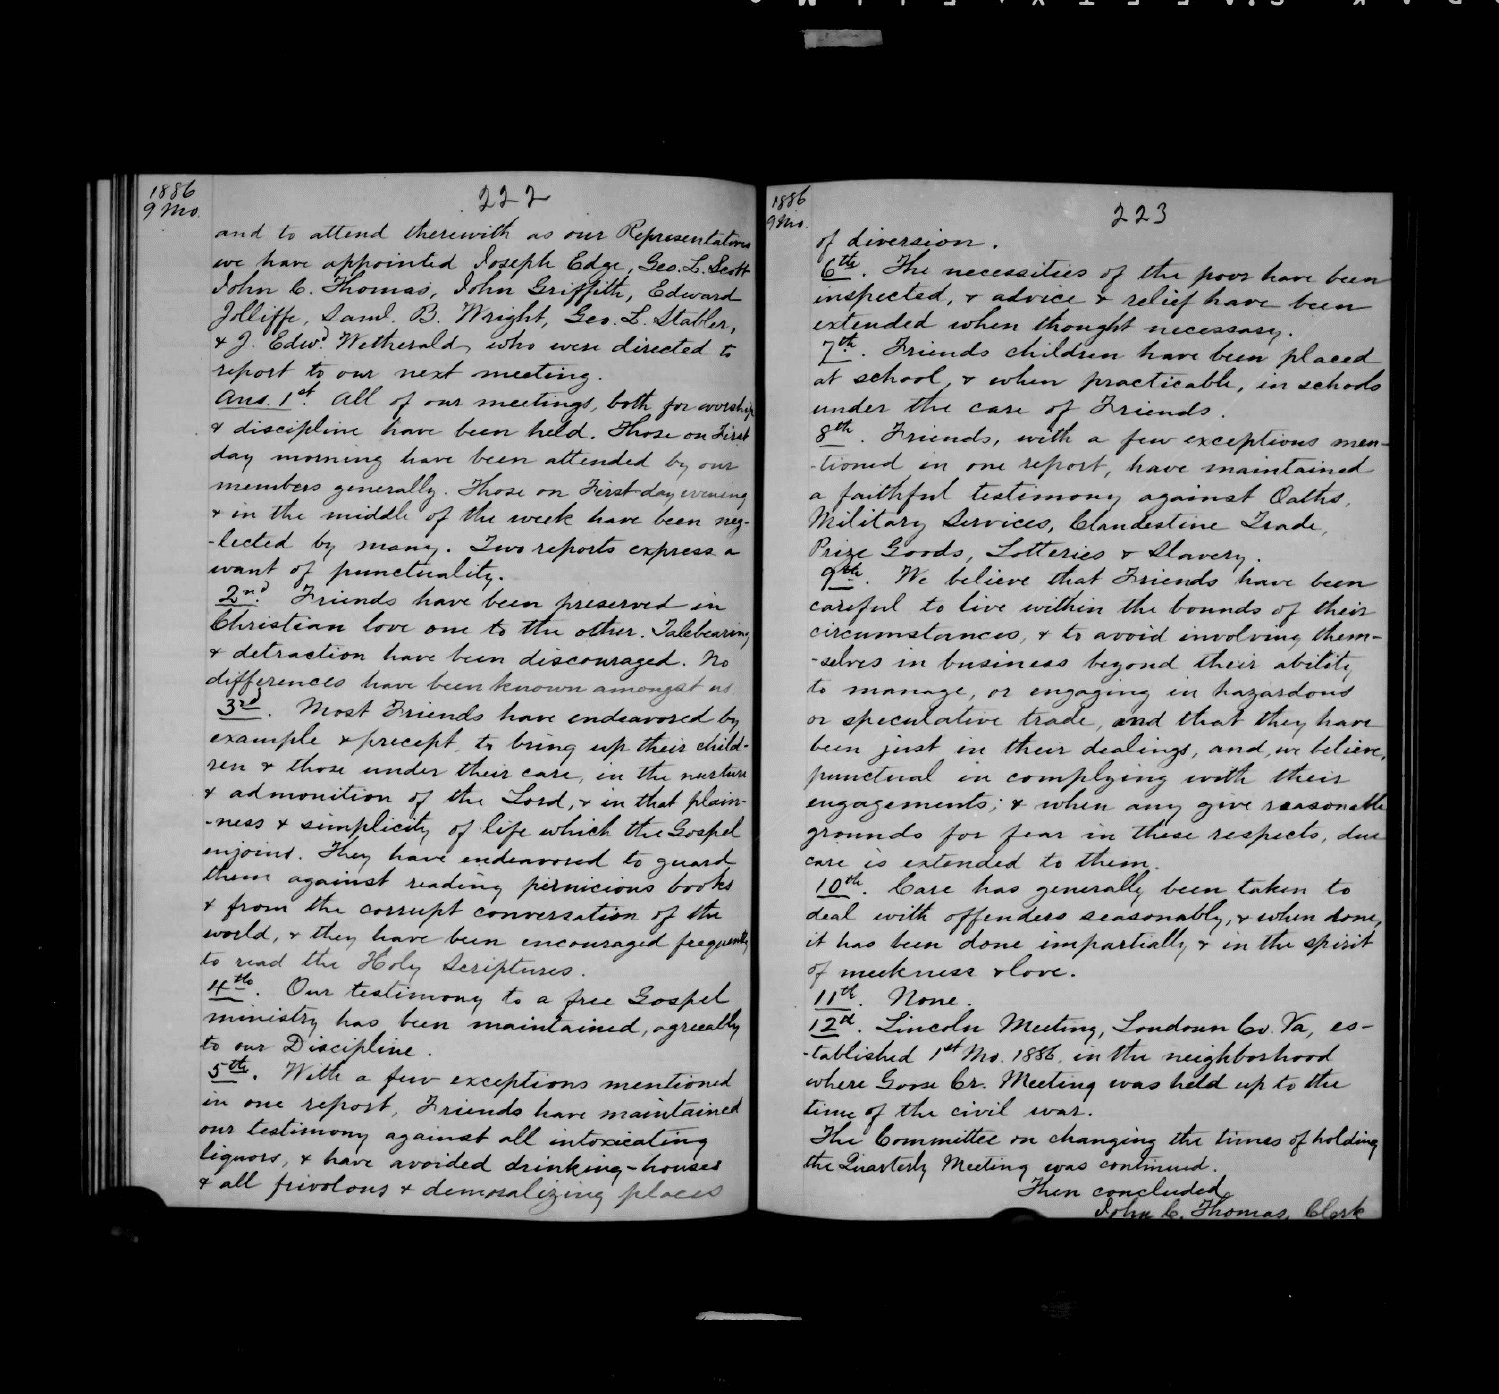 1886
9 Mo.
222
and to attend therewith as our Representatives
we have appointed Joseph Edge, Geo. L. Scott
John C. Thomas, John Griffith, Edward
Jolliffe, Saml. B. Wright, Geo. L. Stabler,
& J. Edwd. Wetherald, who were directed to
report to our next meeting.
Ans. 1st. All of our meetings, both for worship
& discipline have been held. Those on First
day morning have been attended by our
members generally. Those on First-day evening
& in the middle of the week have been neg-
-lected by many. Two reports express a
want of punctuality.
2nd. Friends have been preserved in
Christian love one to the other. Talebearing
& detraction have been discouraged. No
differences have been known amongst us
3rd. Most Friends have endeavored by
example & precept, to bring up their child-
ren & those under their care, in the nurture
& admonition of the Lord, & in that plain-
-ness & simplicity of life which the Gospel
enjoins. They have endeavored to guard
them against reading pernicious books
& from the corrupt conversation of the
world, & they have been encouraged frequently
to read the Holy Scriptures.
4th. Our testimony to a free Gospel
ministry has been maintained, agreeably
to our Discipline.
5th. With a few exceptions mentioned
in one report, Friends have maintained
our testimony against all intoxicating
liquors, & have avoided drinking-houses
& all frivolous & demoralizing places
1886
9 Mo.
223
of diversion.
6th. The necessities of the poor have been
inspected, & advice & relief have been
extended when thought necessary.
7th. Friends children have been placed
at school, & when practicable, in schools
under the care of Friends.
8th. Friends, with a few exceptions men-
-tioned in one report, have maintained
a faithful testimony against Oaths,
Military Services, Clandestine Trade,
Prize Goods, Lotteries & Slavery.
9th. We believe that Friends have been
careful to live within the bounds of their
circumstances, & to avoid involving them-
-selves in business beyond their ability
to manage, or engaging in hazardous
or speculative trade, and that they have
been just in their dealings, and, we believe,
punctual in complying with their
engagements; & when any give reasonable
grounds for fear in these respects, due
care is extended to them.
10th. Care has generally been taken to
deal with offenders seasonably, & when done,
it has been done impartially & in the spirit
of meekness & love.
11th. None.
12d. Lincoln Meeting, Loudoun Co. Va, es-
-tablished 1st Mo. 1886, in the neighborhood
where Goose Cr. Meeting was held up to the
time of the civil war.
The Committee on changing the times of holding
the Quarterly Meeting was continued.
Then concluded
John C. Thomas, Clerk